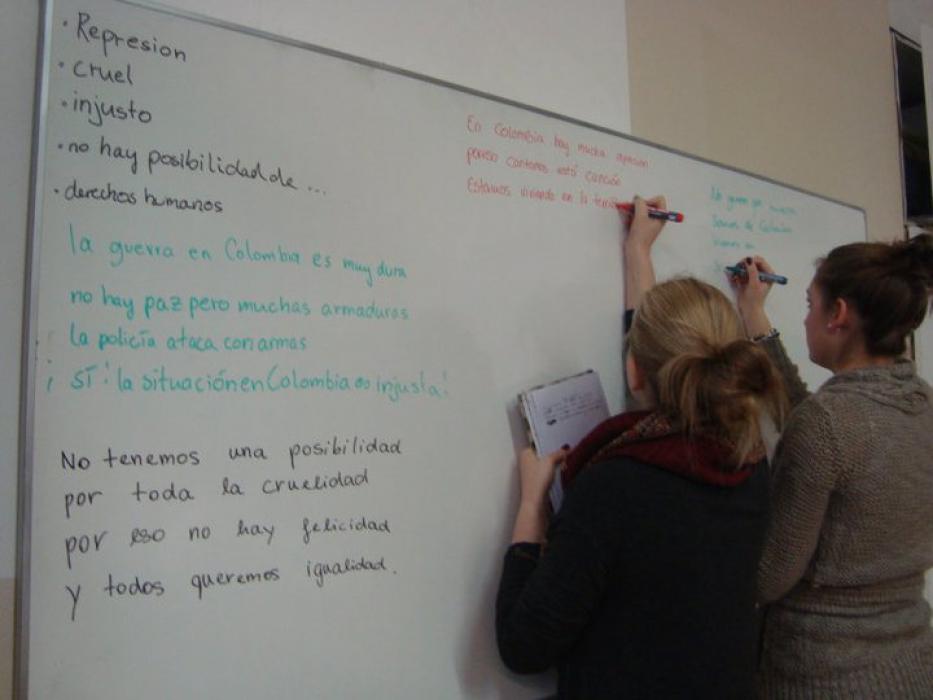 · Represion
· cruel
· injusto
· no hay posibilidad de ...
· derechos humanos
la guerra en Colombia es muy dura
no hay paz pero muchas armaduras
la policía ataca con armas
¡ SÍ ! la situación en Colombia es injusta!
No tenemos una posibilidad
por toda la cruelidad
por eso no hay felicidad
y todos queremos igualidad.
En Colombia hay mucha
poreso cantamos está canción
Estamos viviendo en la